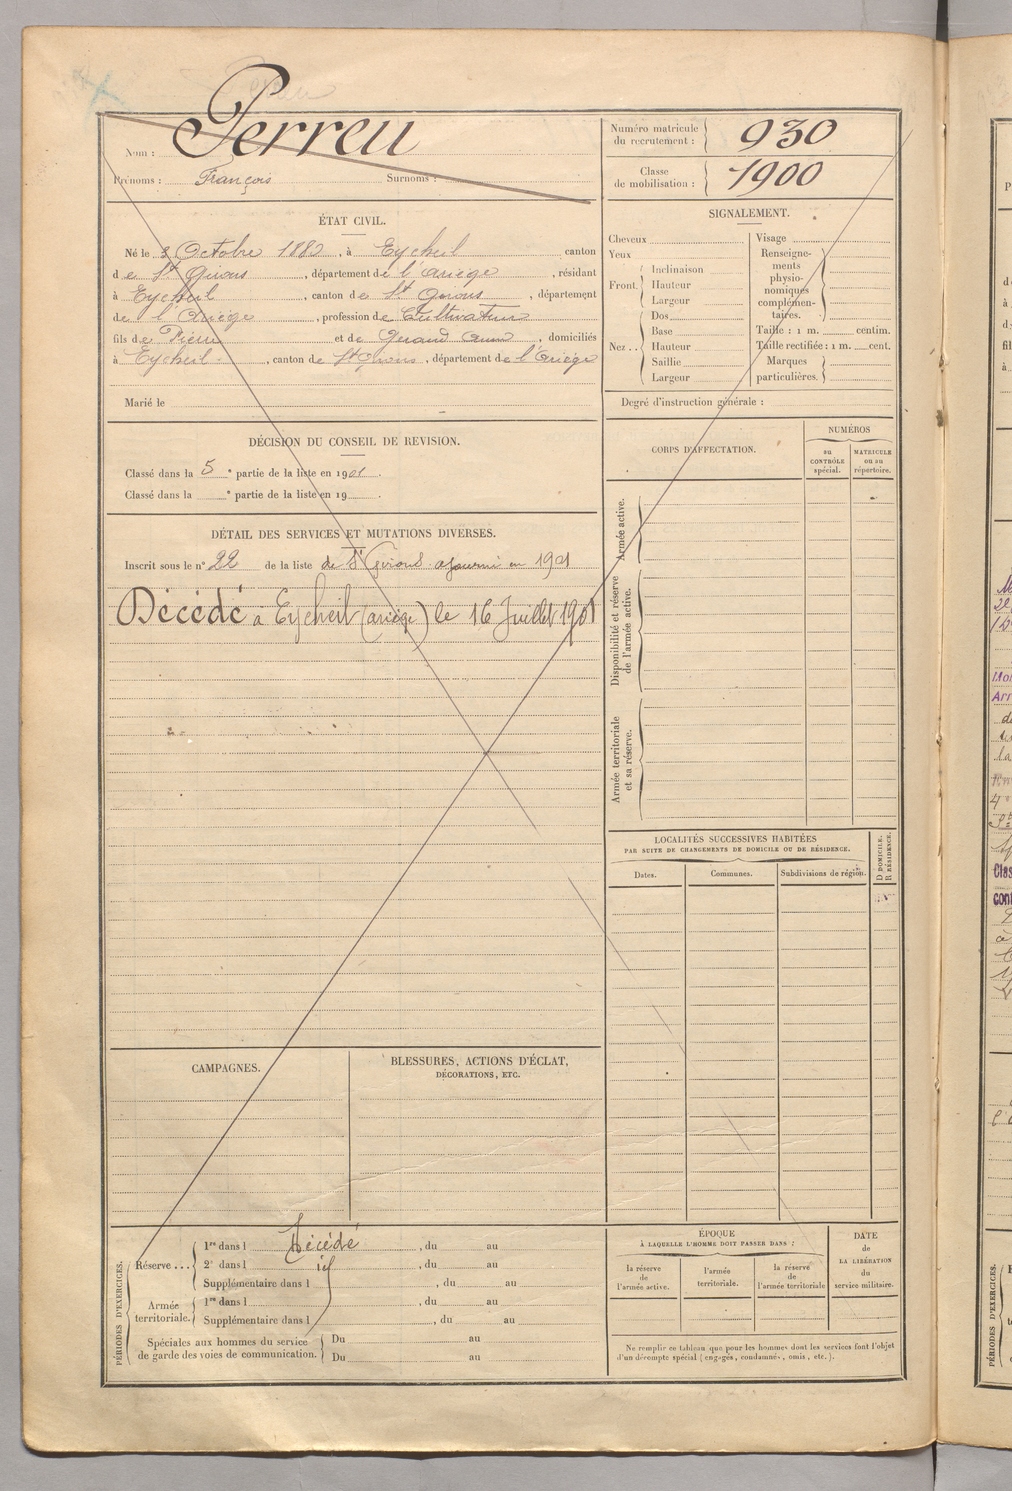 Nom : Perreu
Prénoms : François Surnoms :
Numéro matricule du recrutement : 930
Classe de mobilisation : 1900
ÉTAT CIVIL.
Né le 3 Octobre 1880, à Eycheil canton
de St Girons, département de l'Ariège, résidant
à Eycheil, canton de St Girons, département
de l'Ariège, profession de Cultivateur
fils de Pierre et de Geraud Anne, domiciliés
à Eycheil, canton de St Girons, département de l'Ariège
Marié le
DÉCISION DU CONSEIL DE REVISION.
Classé dans la 5e partie de la liste en 1901.
Classé dans la e partie de la liste en 19 .
DÉTAIL DES SERVICES ET MUTATIONS DIVERSES.
Inscrit sous le n° 22 de la liste de St Girons ajourné en 1901
Décédé à Eycheil (ariège) le 16 Juillet 1901
CAMPAGNES.
BLESSURES, ACTIONS D'ÉCLAT,
DÉCORATIONS, ETC.
PÉRIODES D'EXERCICES.
Réserve...
1re dans l Décédé , du au
2e dans l id , du au
Supplémentaire dans l , du au
Armée territoriale.
1re dans l , du au
Supplémentaire dans l , du au
Spéciales aux hommes du service
de garde des voies de communication.
Du au
Du au
SIGNALEMENT.
Cheveux
Yeux
Front.
Inclinaison
Hauteur
Largeur
Nez..
Dos
Base
Hauteur
Saillie
Largeur
Visage
Renseigne-
ments
physio-
nomiques
complémen-
taires.
Taille : 1 m. centim.
Taille rectifiée : 1 m. cent.
Marques
particulières.
Degré d'instruction générale :
CORPS D'AFFECTATION.
NUMÉROS
au CONTRÔLE spécial.
MATRICULE ou au répertoire.
Armée active.
Disponibilité et réserve
de l'armée active.
Armée territoriale
et sa réserve.
LOCALITÉS SUCCESSIVES HABITÉES
PAR SUITE DE CHANGEMENTS DE DOMICILE OU DE RÉSIDENCE.
Dates.
Communes.
Subdivisions de région.
D DOMICILE.
R RÉSIDENCE.
ÉPOQUE
À LAQUELLE L'HOMME DOIT PASSER DANS :
la réserve de l'armée active.
l'armée territoriale.
la réserve de l'armée territoriale
DATE
de
LA LIBÉRATION
du
service militaire.
Ne remplir ce tableau que pour les hommes dont les services font l'objet
d'un décompte spécial (engagés, condamnés, omis, etc.).
PÉRIODES D'EXERCICES.